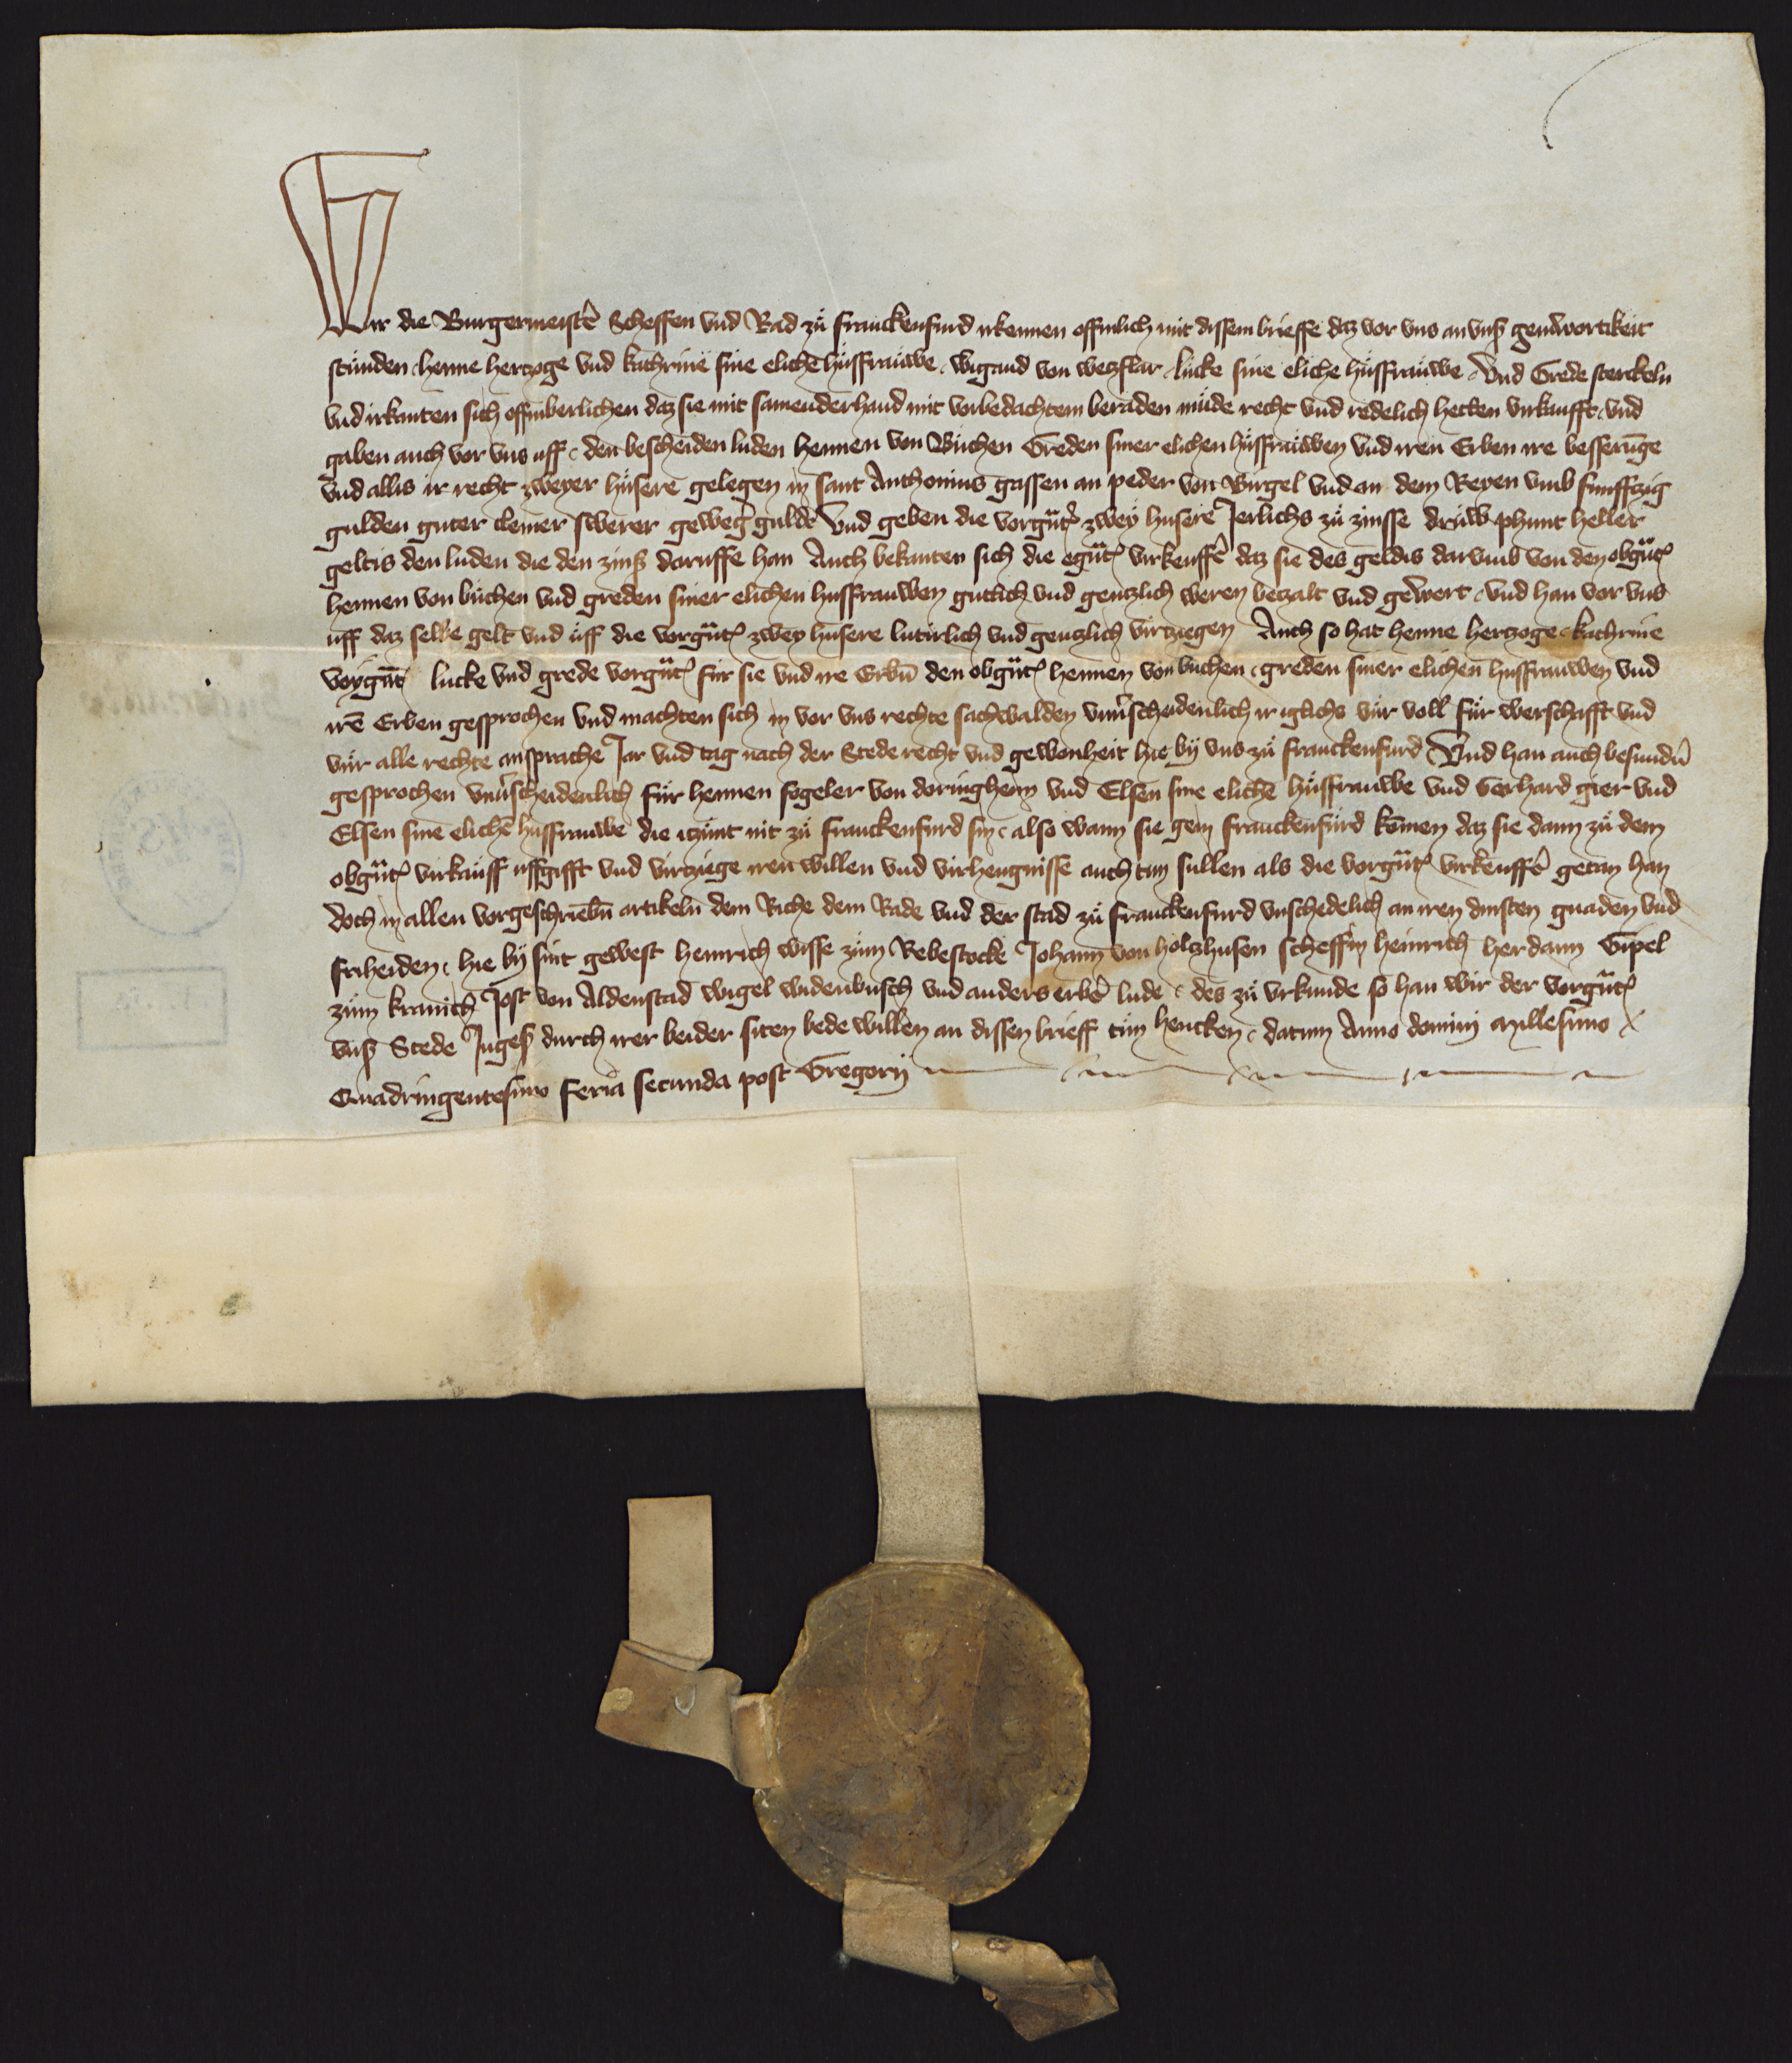 Wir die Burgermeistẽ Scheffen vnd Rad zů franckenfurd irkennen offinlich mit dissem brieffe daz vor vns an vnß geinwortikeit
stůnden henne hertzoge vnd kathrine sine elichẽ hůsfrauwe wigand von wetzflar lůcke sine eliche hůsfrauwe Vnd Grede sterckeln
vnd irkanten sich offinberlichen daz sie mit samenderhand mit vorbedachtem beraden můde recht vnd redelich hetten virkaufft vnd
gaben auch vor vns uff den bescheiden luden hennen von Bůchen Greden siner elichen hůsfrauwen vnd iren Erben ire besserũge
vnd allis ir recht zweyer hůsere gelegen in sant Anthonius gassen an peder von Birgel vnd an dem Reyen vmb funffzig
gulden guter cleiner swerer geweg̃ gulde Vnd geben die vorgũtẽ zwey husere Jerlichs zů zinsse druw phunt heller
geltis den luden die den zinß daruffe han Auch bekanten sich die egũtẽ virkeuffẽ daz sie des geldis darvmb von den obgũtẽ
hennen von bůchen vnd greden siner elichen husfrauwen gutlich vnd gentzlich weren betzalt vnd gewert vnd han vor vns
uff daz selbe gelt vnd uff die vorgũtẽ zwey husere luterlich vnd gentzlich virtziegen Auch so hat henne hertzoge kathrine
lucke vnd grede vorgũtẽ fůr sie vnd ire Erbũ den obgũtẽ hennen von buchen greden siner elichen husfrauwen vnd
irẽ Erben gesprochen vnd machten sich in vor vns rechte sachwalden vnuscheidenlich ir iglichs vůr voll fůr werschafft vnd
vůr alle rechte ansprache Jar vnd tag nach der Stede recht vnd gewonheit hie bij vns zů franckenfurd Vnd han auch besundũ
gesprochen vnuscheidenlich fůr hennen fogeler von doringheim vnd Elsen sine elichẽ hůsfrauwe vnd Gerhard gier vnd
Elsen sine elichẽ husfrauwe die itzunt nit zů franckenfurd sin also wann sie gein franckenfůrd komen daz sie dann zů dem
obgũtẽ virkauff uffgifft vnd virtziege iren willen vnd virhengnisse auch tun sullen als die vorgũtẽ virkeuffẽ getan han
doch in allen vorgeschriebñ artikeln dem Riche dem Rade vnd der stad zů franckenfurd vnschedelich an iren dinsten gnaden vnd
friheiden hie bij sint gewest heinrich wisse zům Rebestocke Johann von holtzhusen scheffin heinrich herdann Gipel
zům kranich Jost von Aldenstad wigel widenbusch vnd anders erbẽ lude des zů vrkunde so han wir der vorgũtẽ
vnß Stede Jngeß durch irer beider siten bede willen an dissen brieff tůn hencken datum Anno domini Millesimo
Quadringentesimo feria secunda post Gregorij